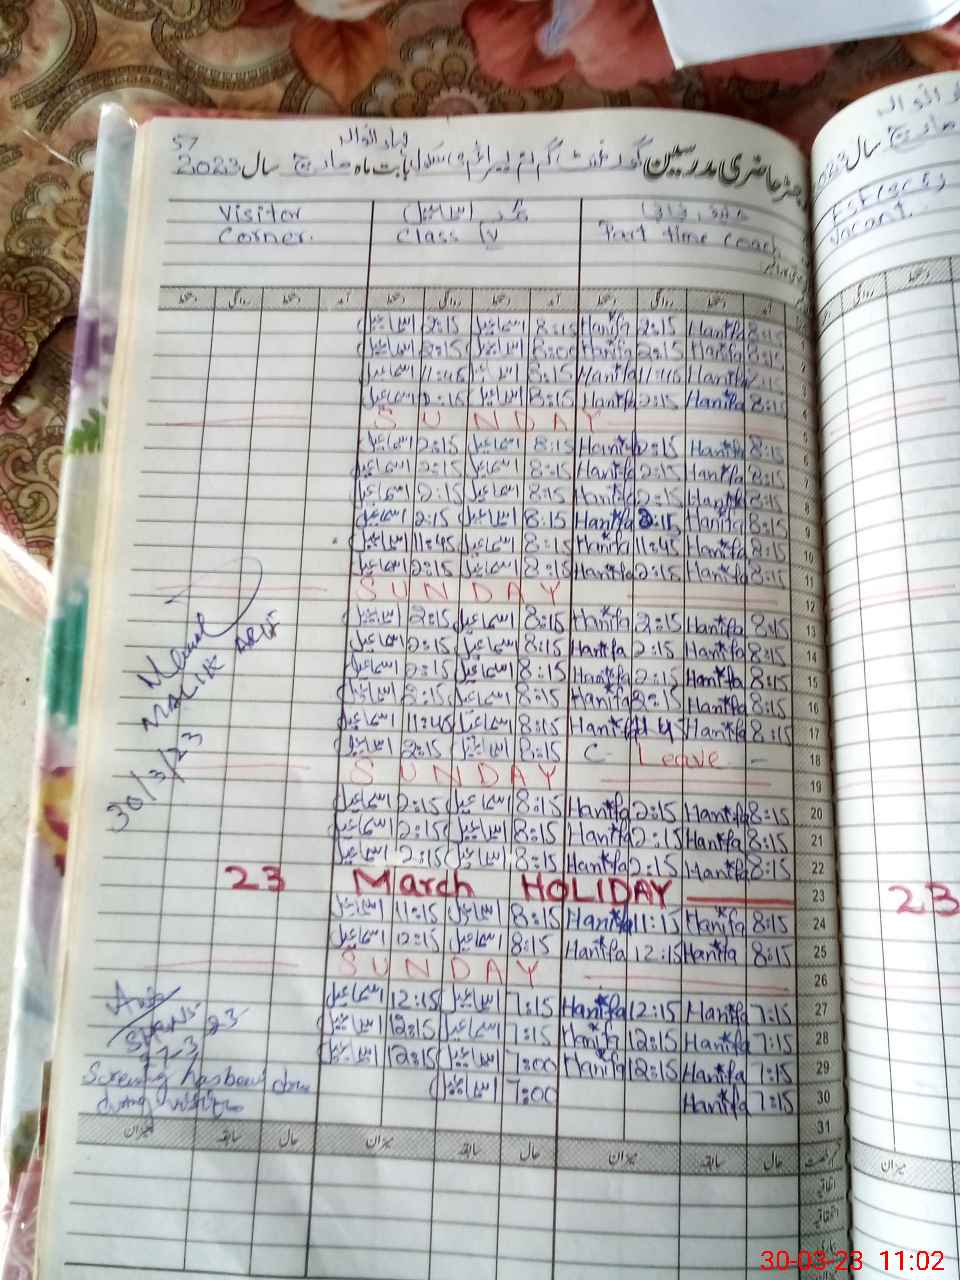 57
رجسٹر حاضری مدرسین گورنمنٹ گرلز پرائمری سکول بابت ماہ مارچ سال 2023
Visitor محمد اسماعیل
Corner. Class IV Part time coach
دستخط روانگی دستخط آمد دستخط روانگی دستخط آمد دستخط روانگی دستخط آمد
اسماعیل 2:15 اسماعیل 8:15 Hanifa 2:15 Hanifa 8:15
اسماعیل 2:15 اسماعیل 8:00 Hanifa 2:15 Hanifa 8:15 2
اسماعیل 11:45 اسماعیل 8:15 Hanifa 11:45 Hanifa 8:15 3
اسماعیل 2:15 اسماعیل 8:15 Hanifa 2:15 Hanifa 8:15 4
SUNDAY 5
اسماعیل 2:15 اسماعیل 8:15 Hanifa 2:15 Hanifa 8:15 6
اسماعیل 2:15 اسماعیل 8:15 Hanifa 2:15 Hanifa 8:15 7
اسماعیل 2:15 اسماعیل 8:15 Hanifa 2:15 Hanifa 8:15 8
اسماعیل 2:15 اسماعیل 8:15 Hanifa 2:15 Hanifa 8:15 9
اسماعیل 11:45 اسماعیل 8:15 Hanifa 11:45 Hanifa 8:15 10
اسماعیل 2:15 اسماعیل 8:15 Hanifa 2:15 Hanifa 8:15 11
SUNDAY 12
اسماعیل 2:15 اسماعیل 8:15 Hanifa 2:15 Hanifa 8:15 13
اسماعیل 2:15 اسماعیل 8:15 Hanifa 2:15 Hanifa 8:15 14
اسماعیل 2:15 اسماعیل 8:15 Hanifa 2:15 Hanifa 8:15 15
اسماعیل 2:15 اسماعیل 8:15 Hanifa 2:15 Hanifa 8:15 16
اسماعیل 11:45 اسماعیل 8:15 Hanifa 11:45 Hanifa 8:15 17
اسماعیل 2:15 اسماعیل 8:15 C- Leave - 18
SUNDAY 19
اسماعیل 2:15 اسماعیل 8:15 Hanifa 2:15 Hanifa 8:15 20
اسماعیل 2:15 اسماعیل 8:15 Hanifa 2:15 Hanifa 8:15 21
اسماعیل 2:15 اسماعیل 8:15 Hanifa 2:15 Hanifa 8:15 22
23 March HOLIDAY 23
اسماعیل 11:15 اسماعیل 8:15 Hanifa 11:15 Hanifa 8:15 24
اسماعیل 12:15 اسماعیل 8:15 Hanifa 12:15 Hanifa 8:15 25
SUNDAY 26
اسماعیل 12:15 اسماعیل 7:15 Hanifa 12:15 Hanifa 7:15 27
اسماعیل 12:15 اسماعیل 7:15 Hanifa 12:15 Hanifa 7:15 28
اسماعیل 12:15 اسماعیل 7:00 Hanifa 12:15 Hanifa 7:15 29
اسماعیل 7:00 Hanifa 7:15 30
31
MALIK ARIF
30/3/23
during visit
میزان سابقہ حال میزان سابقہ حال میزان سابقہ حال
اتفاقیہ
مارچ سال
Vacant.
23
میزان
30-03-23 11:02